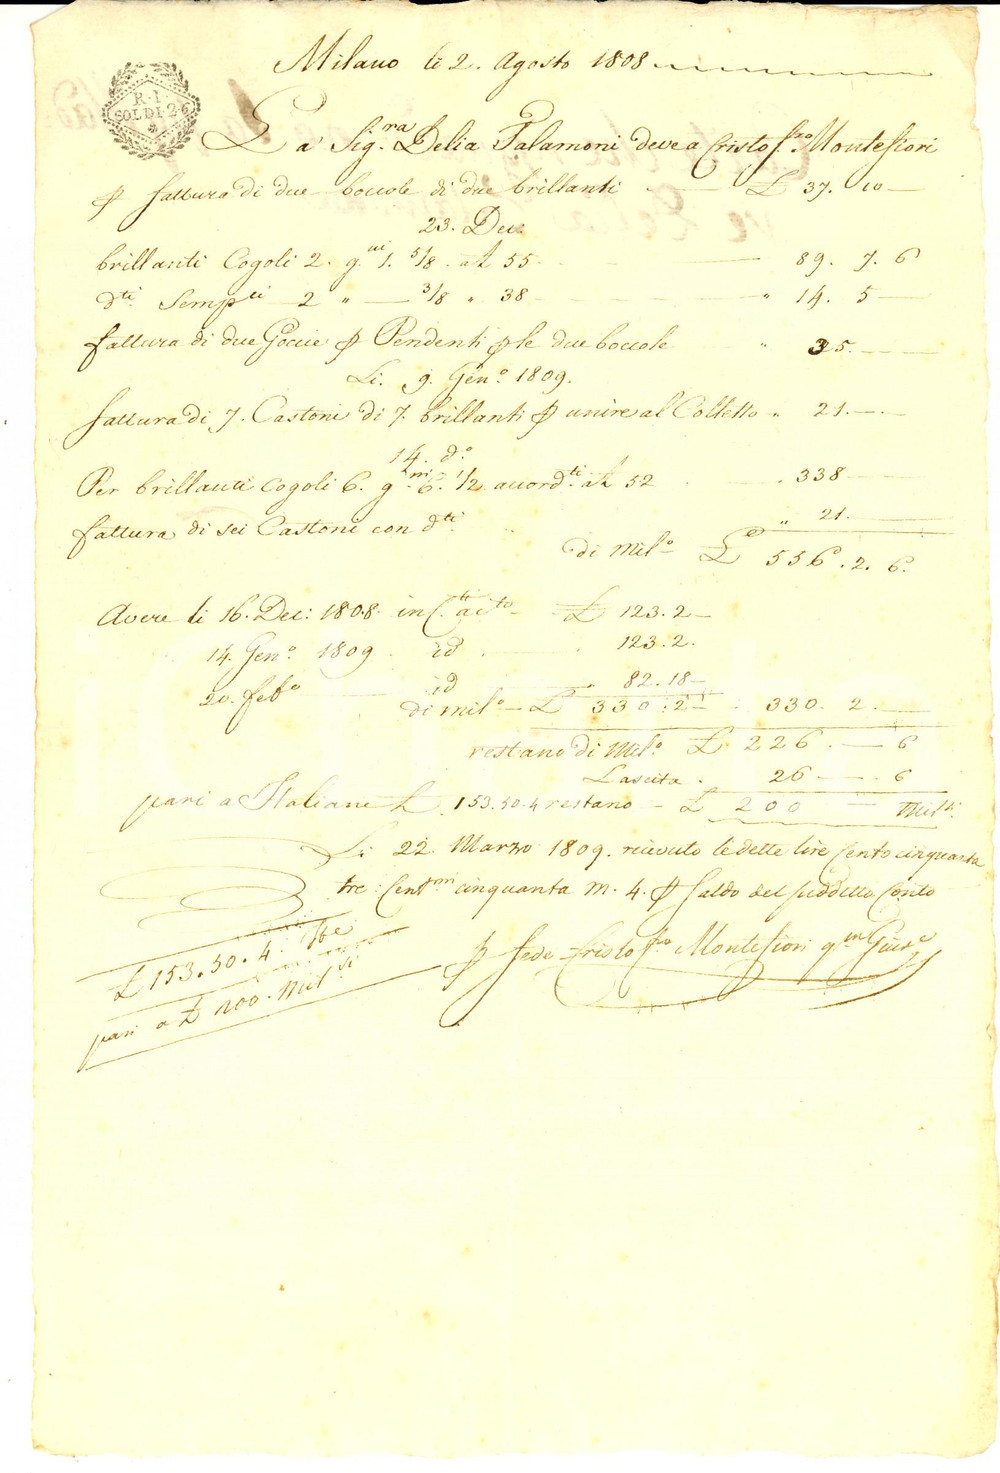 Milano li 2. Agosto 1808
R. I.
SOLDI. 2.6
La Sig.ra Delia Palamoni deve a Cristof.ro Montefiori
p fattura di due boccole di due brillanti £ 37. 10 —
23. Dec.
brillanti Cogoli 2. g.ni 1. 5/8. a £ 55 — 89. 7. 6
d.ti Sempl.ti 2 " — 3/8 " 38 — " 14. 5 —
fattura di due Goccie p Pendenti p le due boccole " 35. — —
Li. 9. Gen.o 1809.
fattura di 7. Castoni di 7. brillanti p unire al Colletto " 21. — . —
14. d.o
Per brillanti Cogoli 6. g.ni 6. 1/2 accord.ti a £ 52 . 338 — —
fattura di sei Castoni con d.ti " 21. —
di Mil.o £ 556. 2. 6.
Avere li 16. Dec: 1808. in C. £ 123. 2 —
14. Gen.o 1809 . id . 123. 2.
20. feb.o — id — " 82. 18 —
di mil.o — £ 330 : 2 — 330. 2. —
restano di Mil.o £ 226. — 6
Lascita . 26 — . 6
pari a Italiane £ 153. 50. 4 restano — £ 200 — Mil.i
Li 22 Marzo 1809. ricevuto le dette lire Cento cinquanta
tre: Cent.mi cinquanta m. 4. p Saldo del suddetto Conto
p fede Cristof.ro Montefiori q.m Gius.e
£ 153. 50. 4.
pari a £ 200. Mil.si